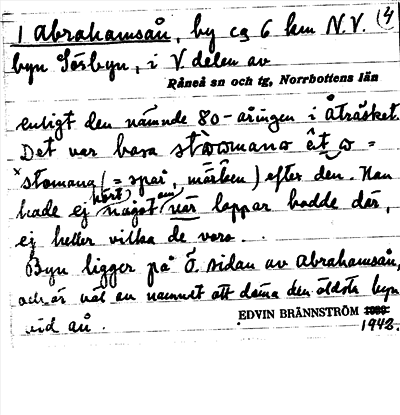 1 Abrahamsån, by ca 6 km N.V. (4
byn Sörbyn, i V delen av
Råneå sn och tg, Norrbottens län
enligt den nämnde 80-åringen i Åträsket.
Det var bara =
stomana (= spår, märken) efter den. Han
hade ej hört något om när lappar bodde där,
ej heller vilka de voro.
Byn ligger på Ö. sidan av Abrahamsån,
och är väl av namnet att döma den äldsta byn
vid ån.
EDVIN BRÄNNSTRÖM
1942.